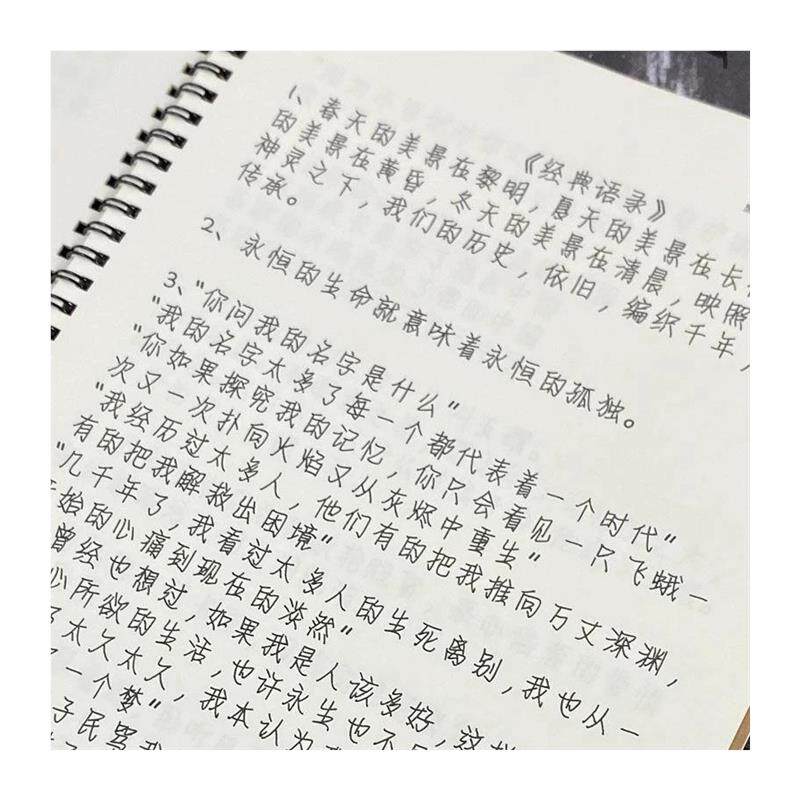 《经典语录》
1、春天的美景在黎明，夏天的美景在长
的美景在黄昏，冬天的美景在清晨，映照
神灵之下，我们的历史，依旧，编织千年，
传承。
2、永恒的生命就意味着永恒的孤独。
3、"你问我的名字是什么"
"我的名字太多了每一个都代表着一个时代"
"你如果探究我的记忆，你只会看见一只飞蛾一
次又一次扑向火焰又从灰烬中重生"
"我经历过太多人，他们有的把我推向万丈深渊，
有的把我解救出困境"
"几千年了，我看过太多人的生死离别，我也从一
开始的心痛到现在的淡然"
曾经也想过，如果我是人该多好，这样
心所欲的生活，也许永生也不
了太久太久，我本认为
一个梦"
子民骂我